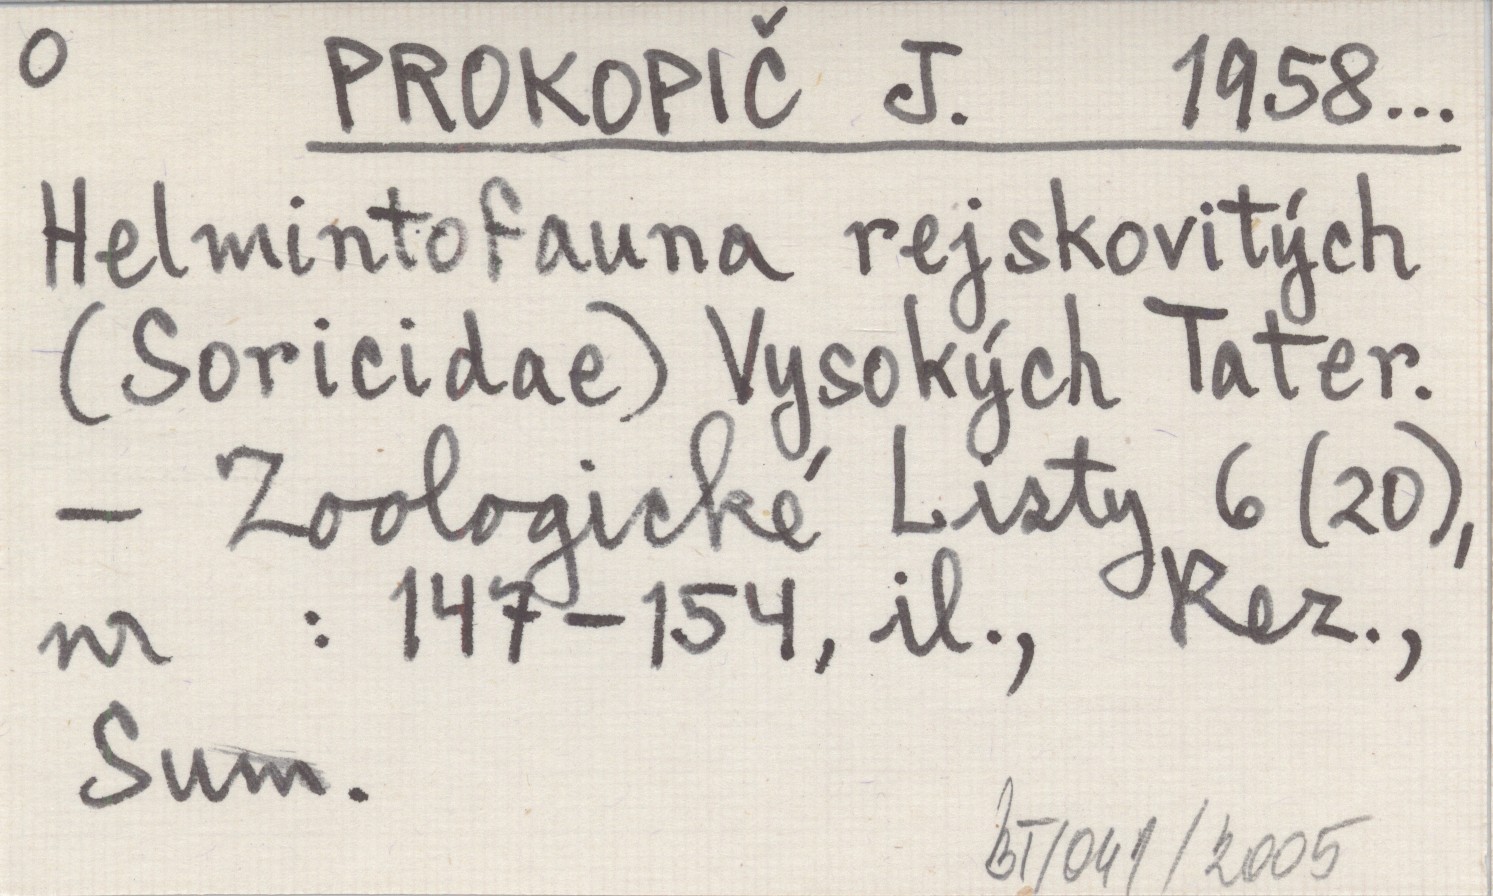 O PROKOPIČ J. 1958...
Helmintofauna rejskovitých
(Soricidae) Vysokých Tater.
– Zoologické Listy 6 (20),
nr : 147–154, il., Rez.,
Sum.
BT/041/2005